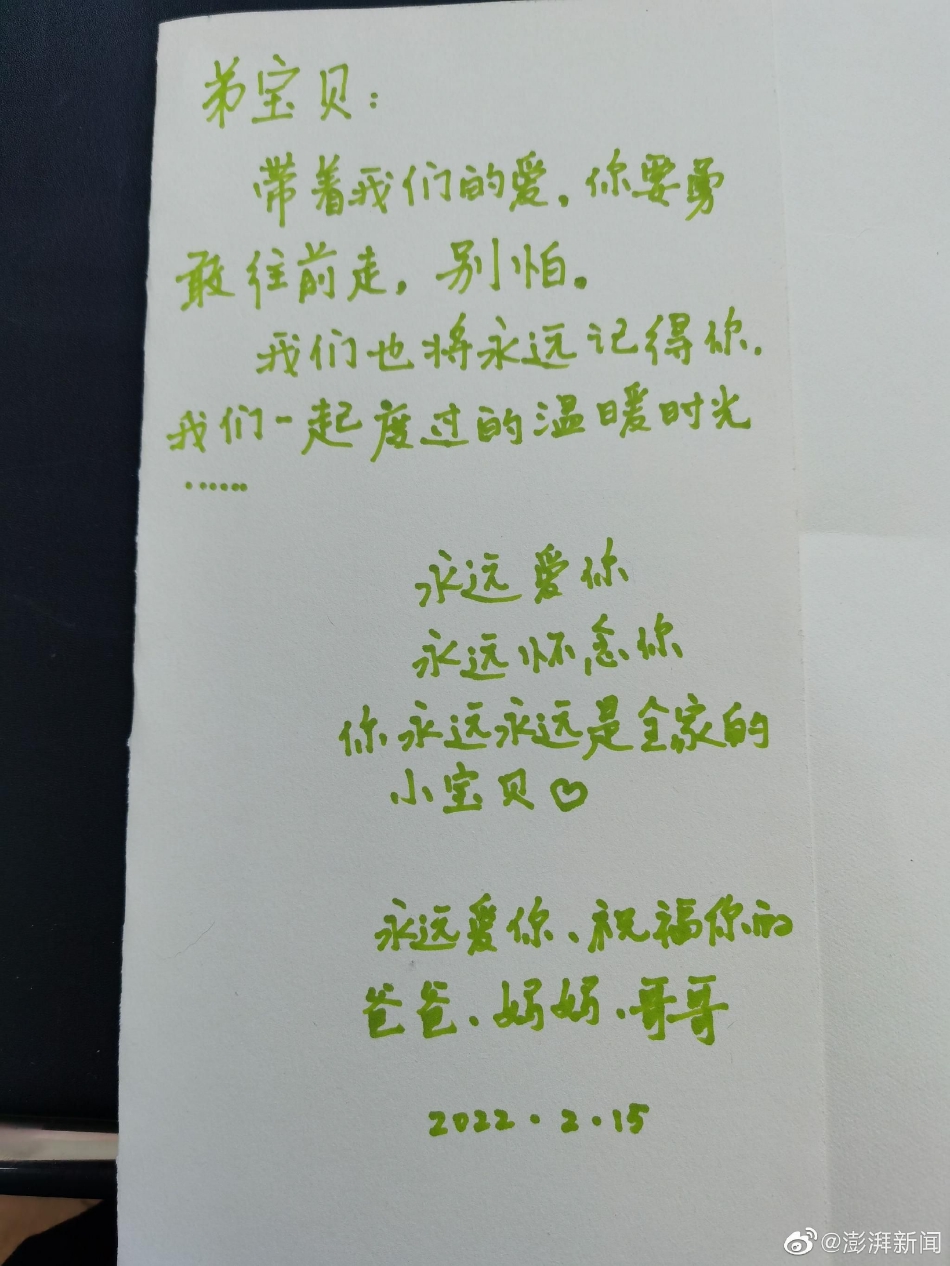 弟宝贝：
带着我们的爱，你要勇
敢往前走，别怕。
我们也将永远记得你.
我们一起度过的温暖时光
……
永远爱你
永远怀念你
你永远永远是全家的
小宝贝♡
永远爱你、祝福你的
爸爸、妈妈、哥哥
2022.2.15
@澎湃新闻